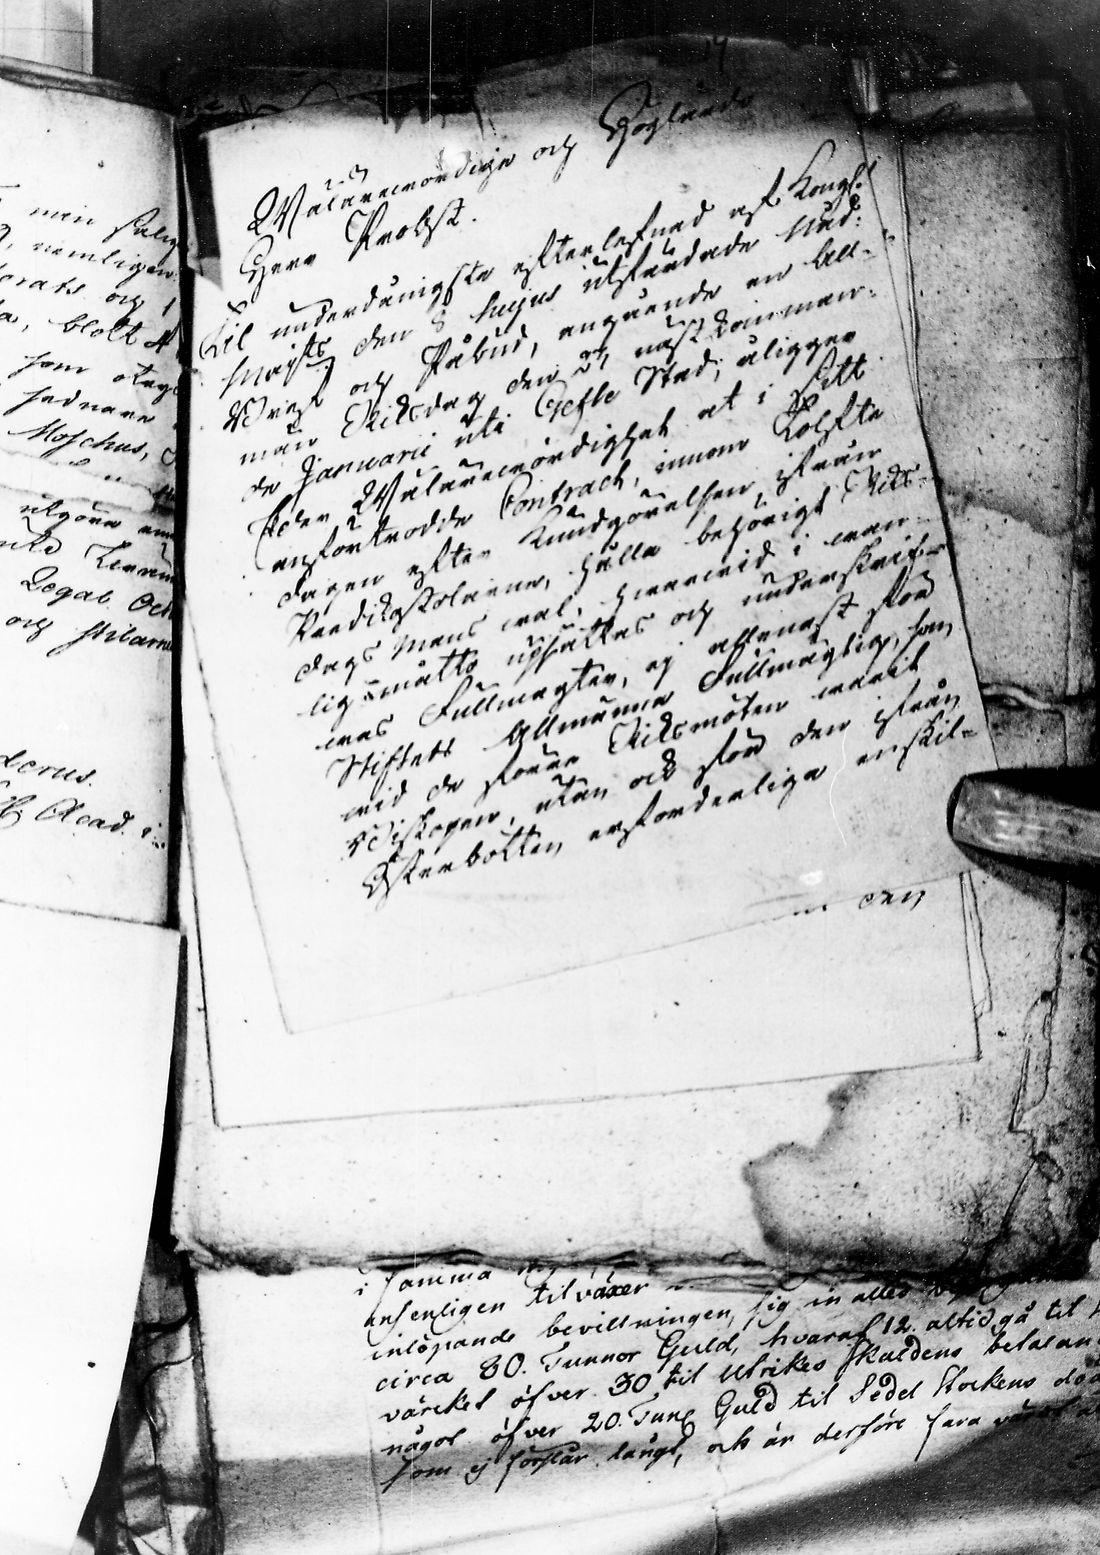 14
Wälärewördige och Höglärde
Herr Probst.
Til underdånigste efterlefnad af Kongl.
Majts den 8 hujus utfärdade Nåd.
Bref och Påbud, angående en All-
män Riksdag den 24 nästkomman-
de Januarii uti Gefle Stad, åligger
Eder Wälärewördighet at i sitt
anförtrodde Contract, innom Tolfte
dagen efter Kundgörelsen ifrån
Predikstolarne, hålla behörigt Riks-
dags Mans wal, hwarwid i wan-
lig måtto upsättes och underskrif-
was Fullmagter, ej allenast för
Stiftets Allmänna Fullmägtig, som
wid de förra Riksmöten warit
Biskopen, utan ock för den ifrån
Österbotten erforderliga enskil-
den
min salig
nemligen
orats och
blott
som
sednare
Moschus,
utgöra
Legat.
och
Acad.
i samma
ansenligen tilväxer
inlöpande bevillningen, sig in alles
circa 80. Tunnor Guld, hvaraf 12. altid gå til
värcket öfver 30 til Utrikes skuldens betalan
något öfver 20. Tunr Guld til Sedel Stockens
som ej förslår långt, och är derföre fara